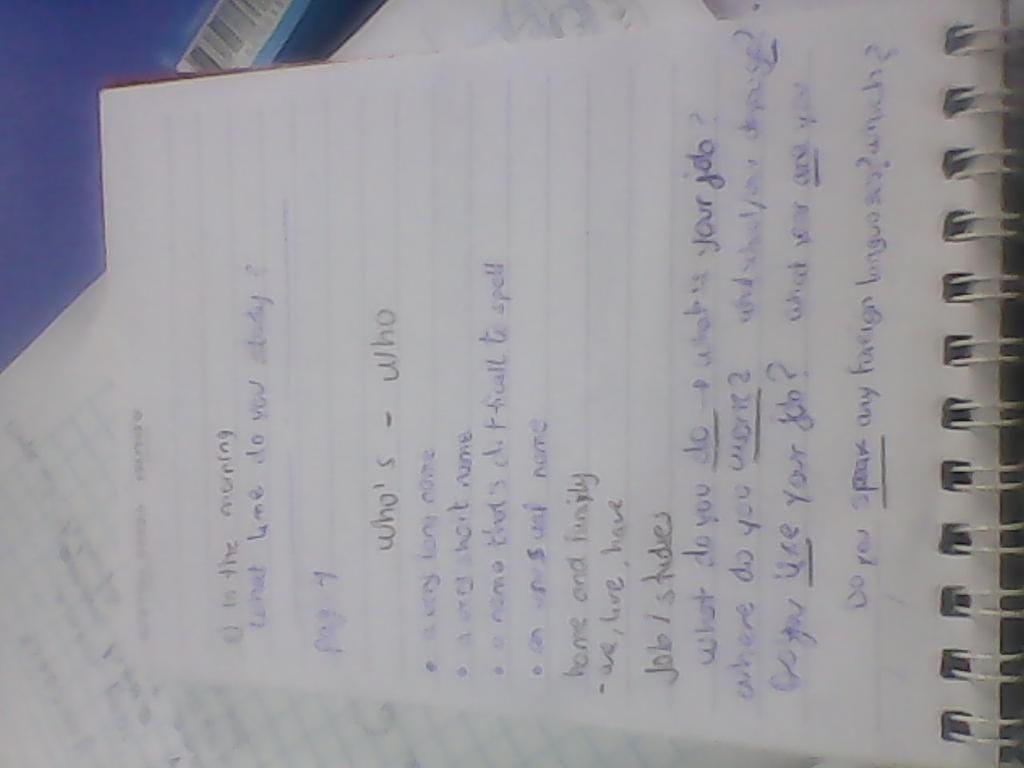 c) In the morning
what time do you study?
pag 4
who's - who
• a very long name
• a very short name
• a name that's difficult to spell
• an unusual name
home and family
- live, have
Job / studies
what do you do → what is your job?
where do you work? what school/your
Do you like your job? what year are you
Do you speak any foreign languages? which?